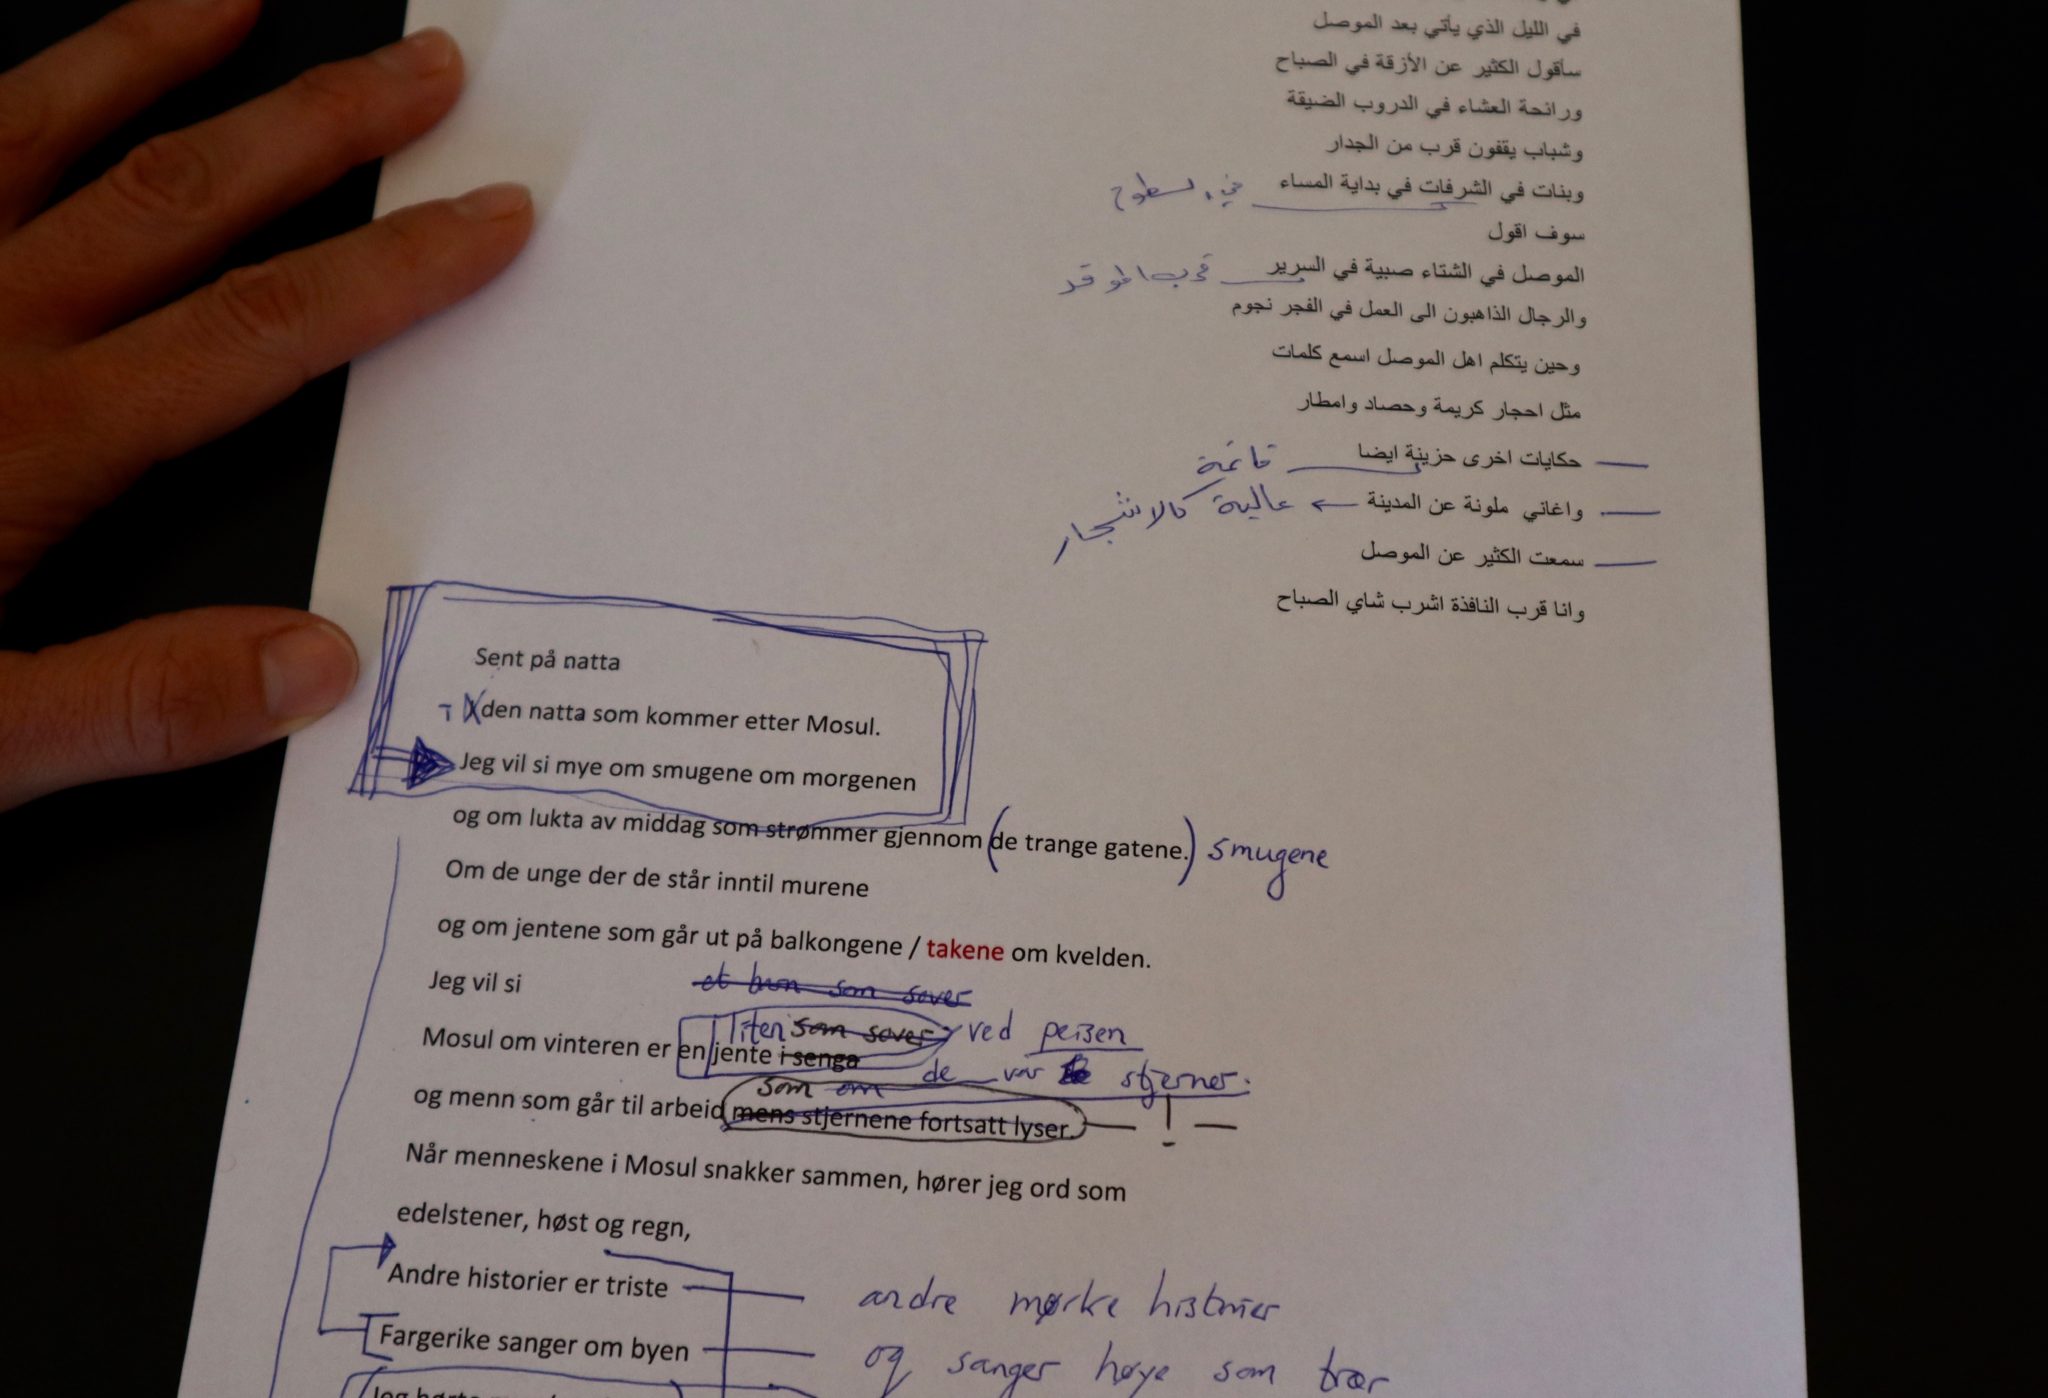 في الليل الذي يأتي بعد الموصل
سأقول الكثير عن الأزقة في الصباح
ورائحة العشاء في الدروب الضيقة
وشباب يقفون قرب من الجدار
وبنات في الشرفات في بداية المساء
سوف اقول
الموصل في الشتاء صبية في السرير قرب الموقد
والرجال الذاهبون الى العمل في الفجر نجوم
وحين يتكلم اهل الموصل اسمع كلمات
مثل احجار كريمة وحصاد وامطار
حكايات اخرى حزينة ايضا قاتمة
واغاني ملونة عن المدينة عالية كالاشجار
سمعت الكثير عن الموصل
وانا قرب النافذة اشرب شاي الصباح
Sent på natta
den natta som kommer etter Mosul.
Jeg vil si mye om smugene om morgenen
og om lukta av middag som strømmer gjennom (de trange gatene.) smugene
Om de unge der de står inntil murene
og om jentene som går ut på balkongene / takene om kvelden.
Jeg vil si
et barn som sover
liten som sover ved peisen
Mosul om vinteren er en jente i senga
som om de var stjerner.
og menn som går til arbeid mens stjernene fortsatt lyser.
Når menneskene i Mosul snakker sammen, hører jeg ord som
edelstener, høst og regn,
Andre historier er triste andre mørke historier
Fargerike sanger om byen og sanger høye som trær